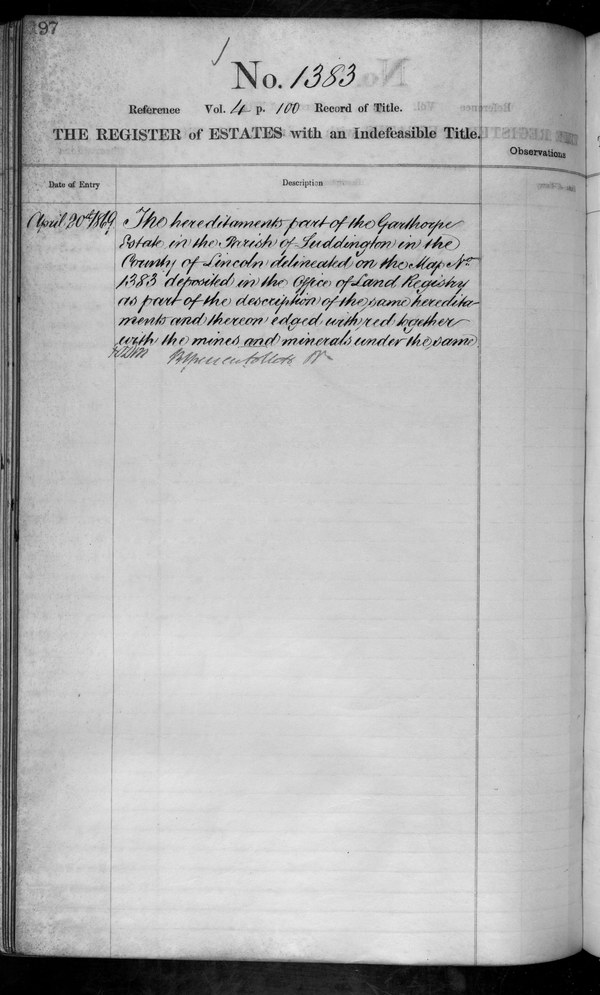 97
No. 1383
Reference Vol. 4 p. 100 Record of Title.
THE REGISTER of ESTATES with an Indefeasible Title.
Observations
Date of Entry
Description
April 20th 1869
The hereditaments part of the Garthorpe
Estate in the Parish of Luddington in the
County of Lincoln delineated on the Map No.
1383 deposited in the Office of Land Registry
as part of the description of the same heredita-
ments and thereon edged with red together
with the mines and minerals under the same